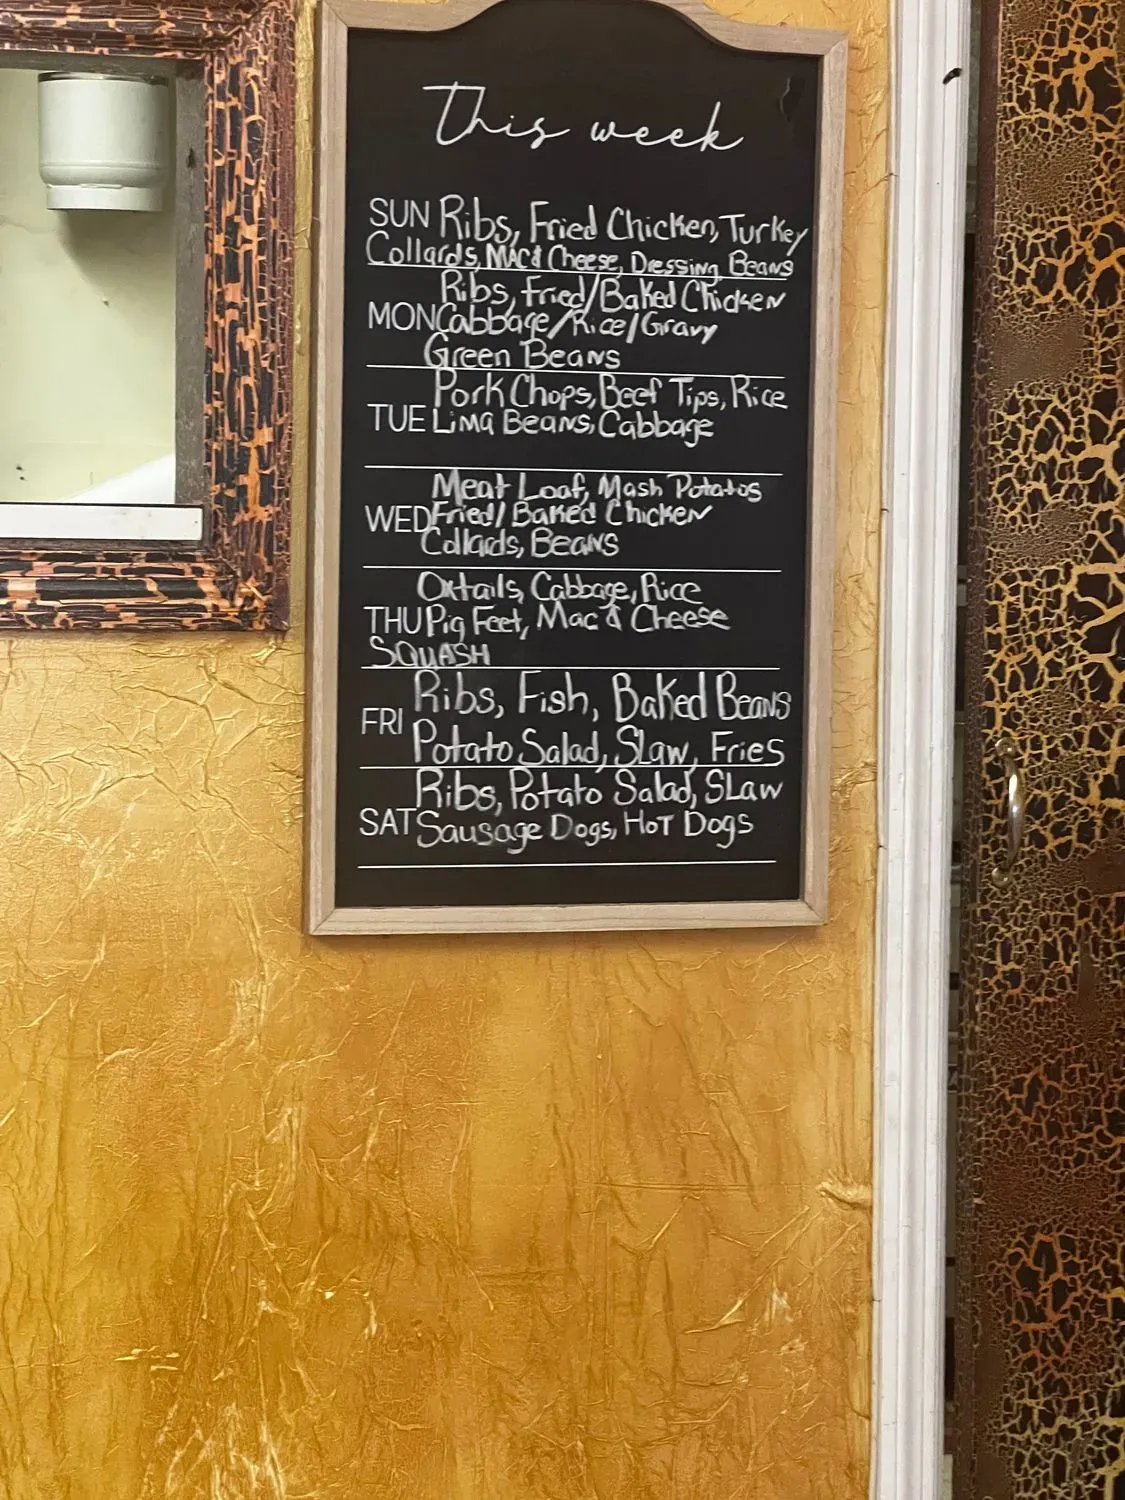 This week
SUN Ribs, Fried Chicken, Turkey
Collards, Mac & Cheese, Dressing, Beans
Ribs, Fried/Baked Chicken
MON Cabbage/Rice/Gravy
Green Beans
Pork Chops, Beef Tips, Rice
TUE Lima Beans, Cabbage
Meat Loaf, Mash Potatos
WED Fried/Baked Chicken
Collads, Beans
Oxtails, Cabbage, Rice
THU Pig Feet, Mac & Cheese
SQUASH
Ribs, Fish, Baked Beans
FRI
Potato Salad, Slaw, Fries
Ribs, Potato Salad, SLaw
SAT Sausage Dogs, HOT Dogs